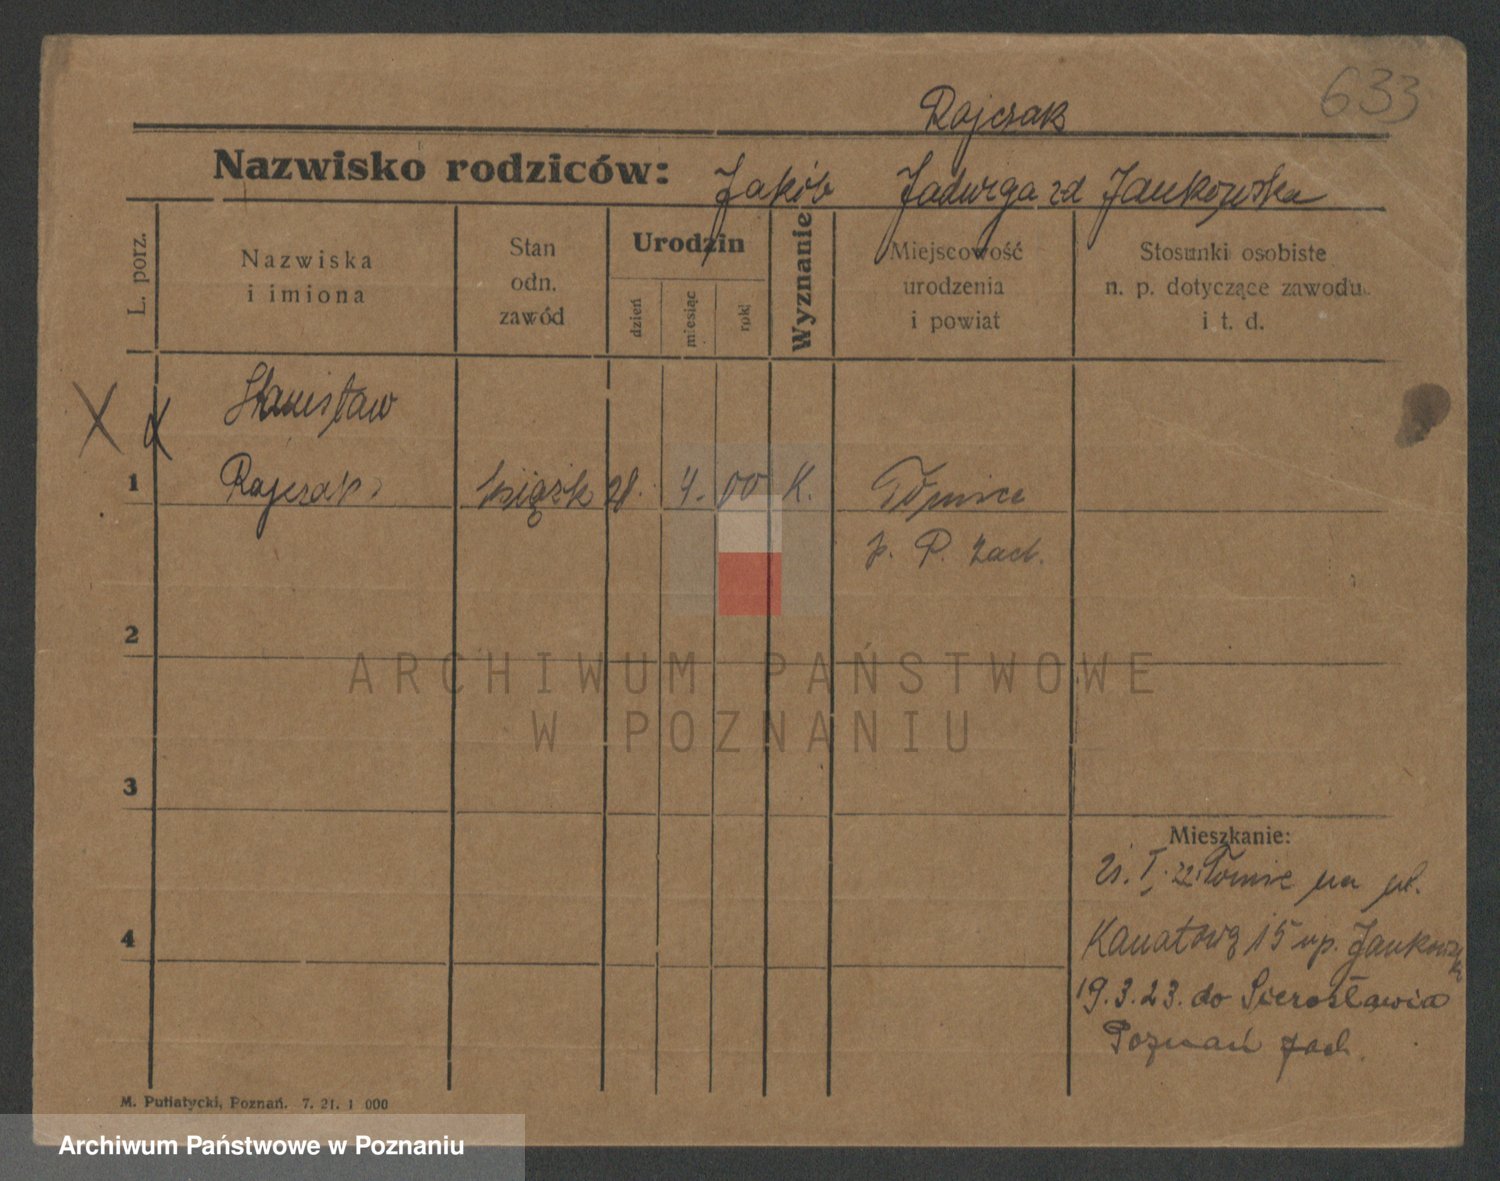 633
Rajczak
Nazwisko rodziców: Jakób Jadwiga zd Jankowska
L. porz.
Nazwiska
i imiona
Stan
odn.
zawód
Urodzin
dzień
miesiąc
rok
Wyznanie
Miejscowość
urodzenia
i powiat
Stosunki osobiste
n. p. dotyczące zawodu
i t. d.
Stanisław
1 Rajczak 28. 4. 00 K.
p. P. zach.
2
ARCHIWUM PAŃSTWOWE
W POZNANIU
3
Mieszkanie:
na ul.
4
Kanatową 15 np. Jankowsk
19.3.23. do Sierosławia
Poznań zach.
M. Putiatycki, Poznań. 7. 21. 1 000
Archiwum Państwowe w Poznaniu